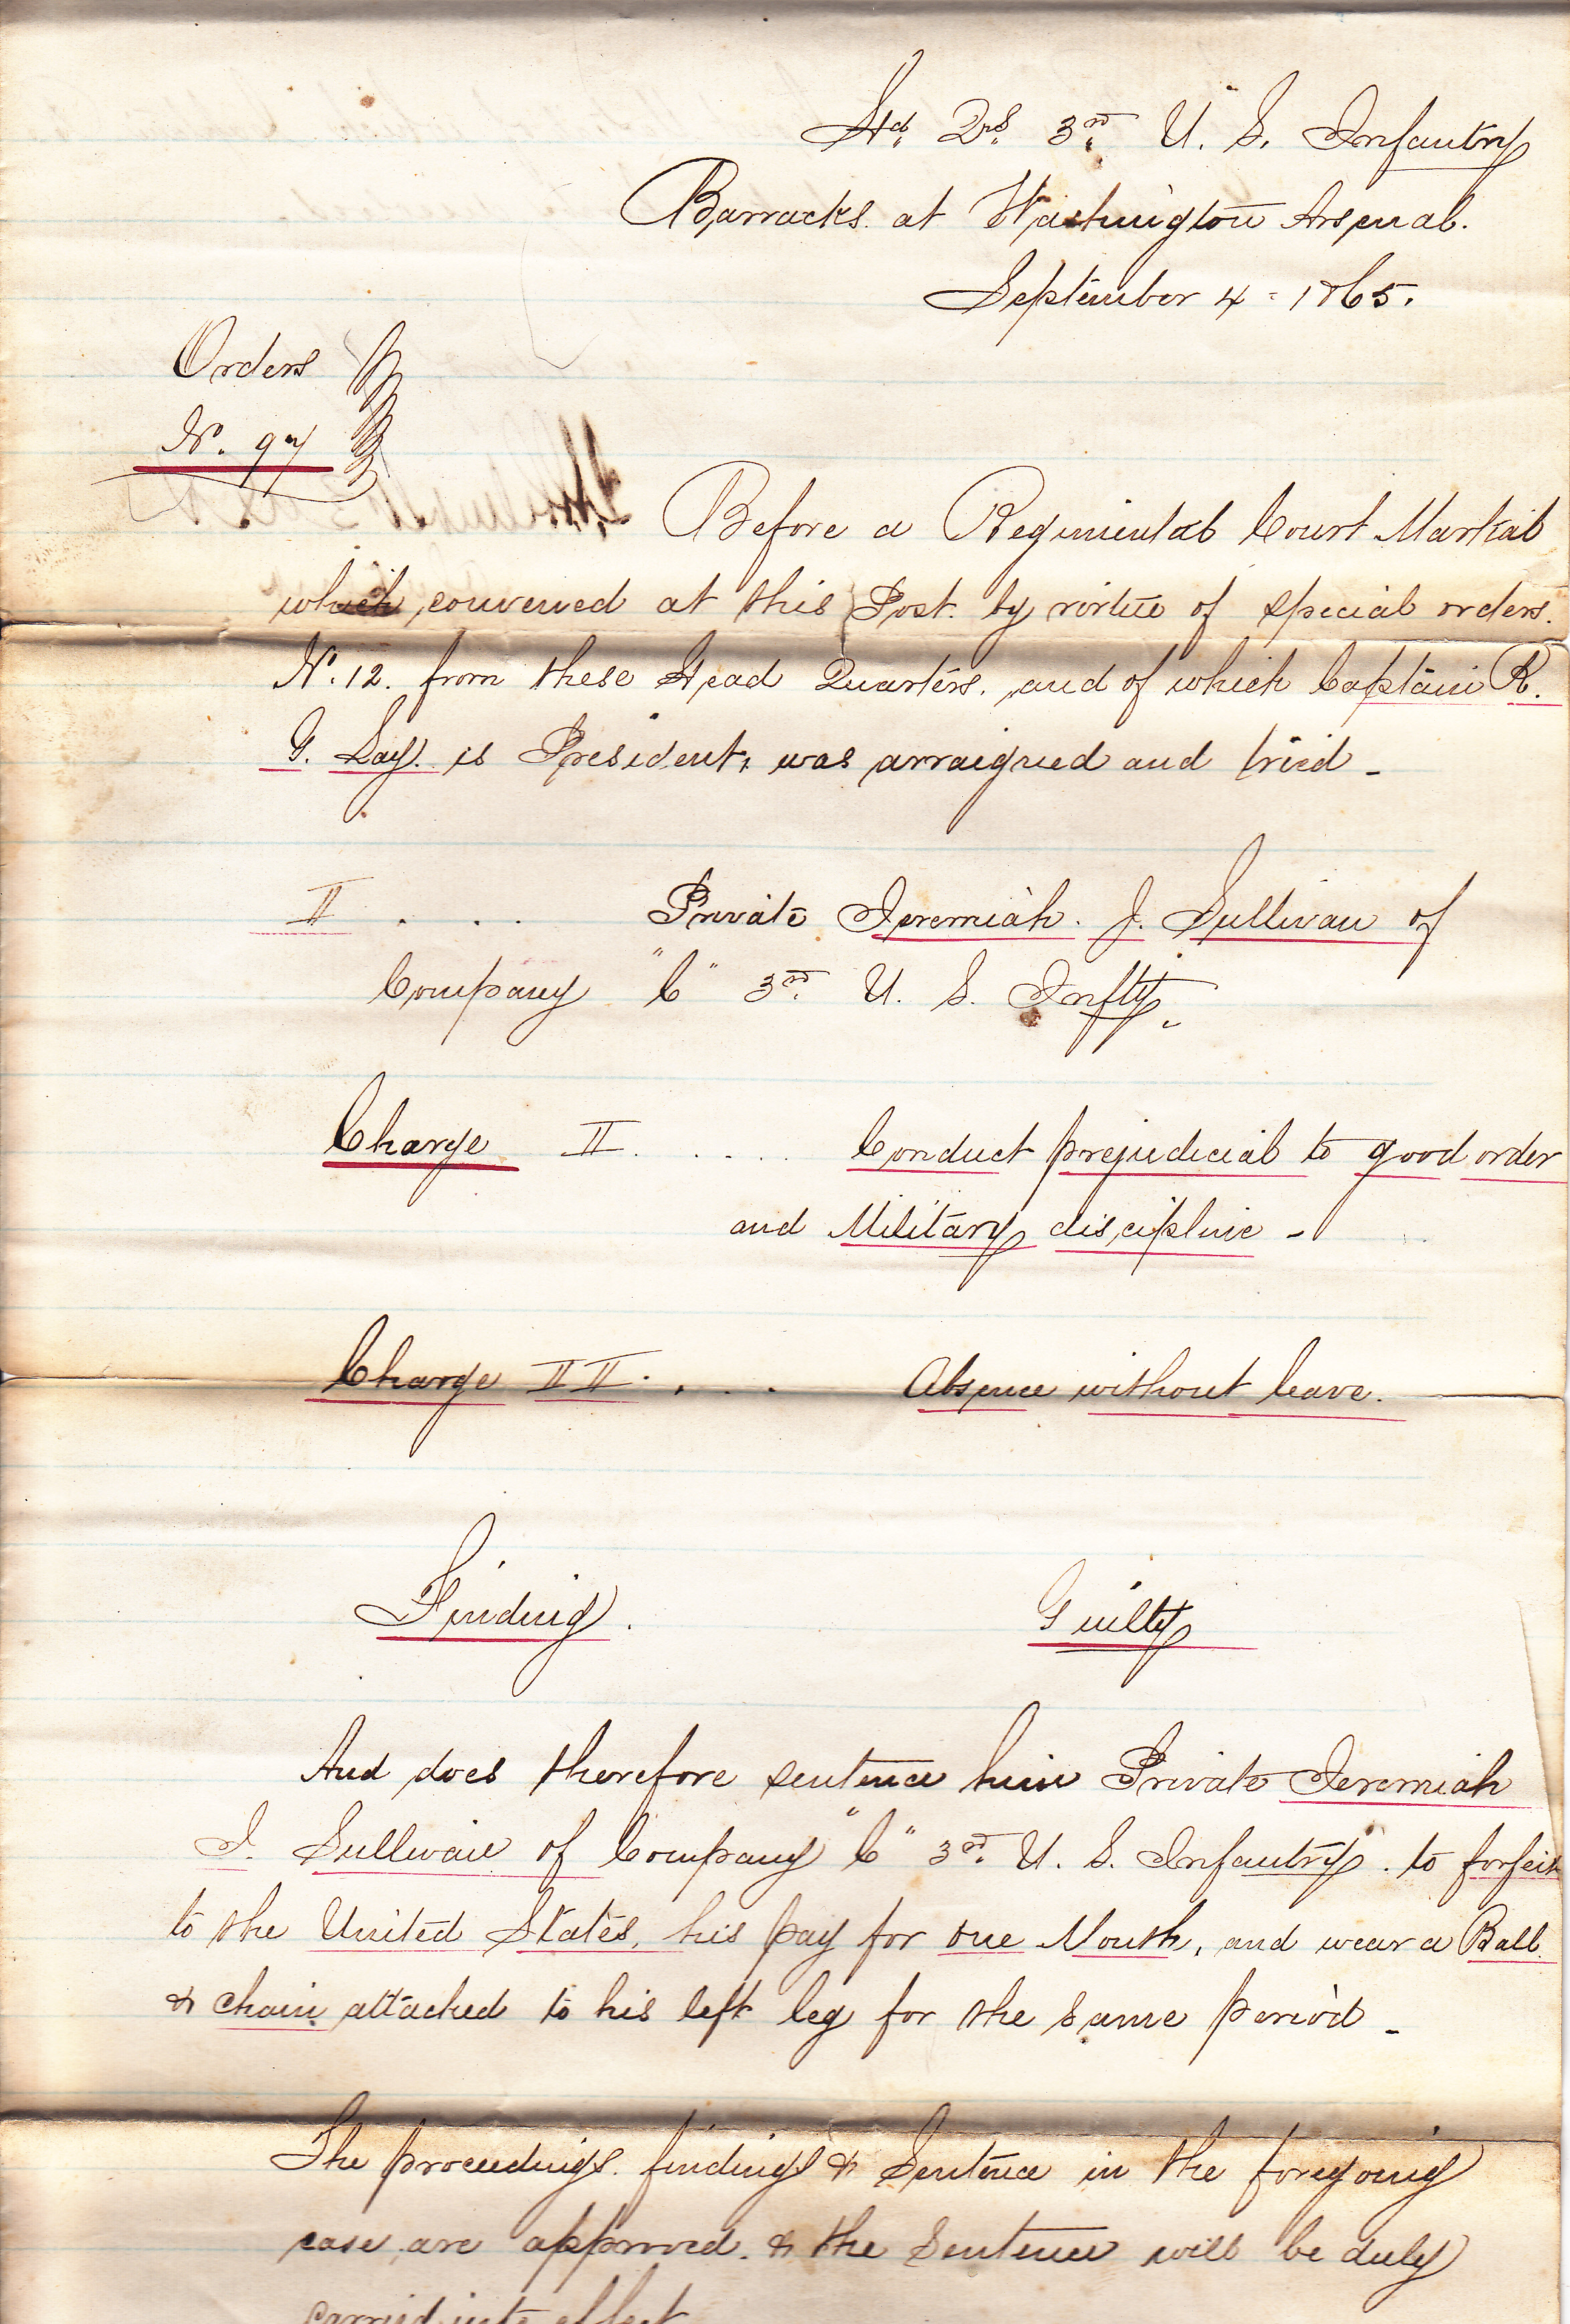 Hd. Qrs. 3rd U. S. Infantry
Barracks. at Washington Arsenal.
September 4 - 1865.
Orders
No. 97
Before a Regimental Court Martial
which convened at this Post. by virtue of special orders.
No. 12. from these Head Quarters. and of which Captain R.
G. Lay. is President, was arraigned and tried -
II . . . Private Jeremiah. J. Sullivan of
Company "C" 3rd. U. S. Infty.
Charge II. . . . . Conduct prejudicial to good order
and Military discipline -
Charge II II. . . . Absence without leave.
Finding. Guilty
And does therefore sentence him Private Jeremiah
J. Sullivan of Company "C" 3rd. U. S. Infantry. to forfeit
to the United States, his pay for one Month, and wear a Ball
& chain attached to his left leg for the same period -
The proceedings. findings & Sentence in the foregoing
case are approved. & the Sentence will be duly
carried into effect